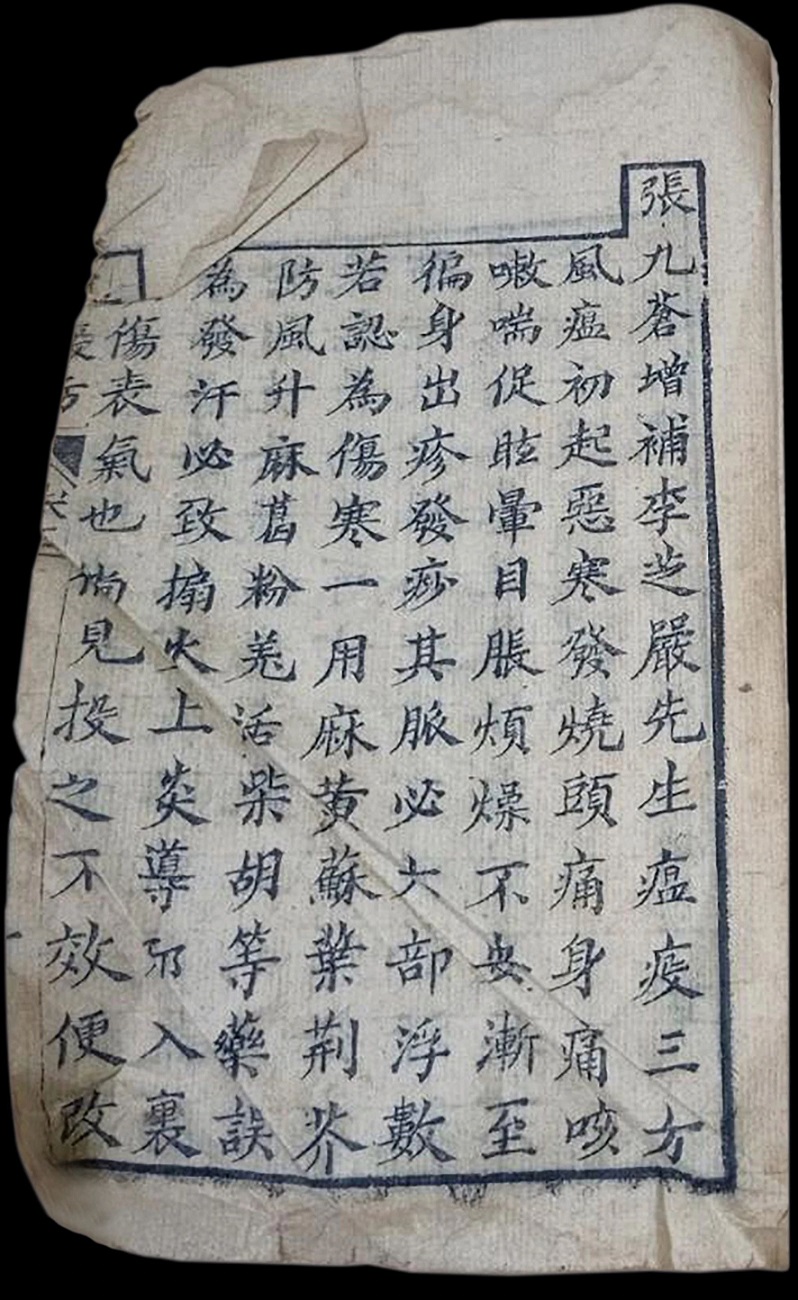 張九蒼增補李芝嚴先生瘟疫三方
風瘟初起惡寒發燒頭痛身痛咳
嗽喘促眩暈目脹煩燥不安漸至
徧身出疹發痧其脈必六部浮數
若認為傷寒一用麻黃蘇葉荆芥
防風升麻葛粉羗活柴胡等藥誤
為發汗必致搧火上炎導邪入裏
傷表氣也倘見投之不效便改